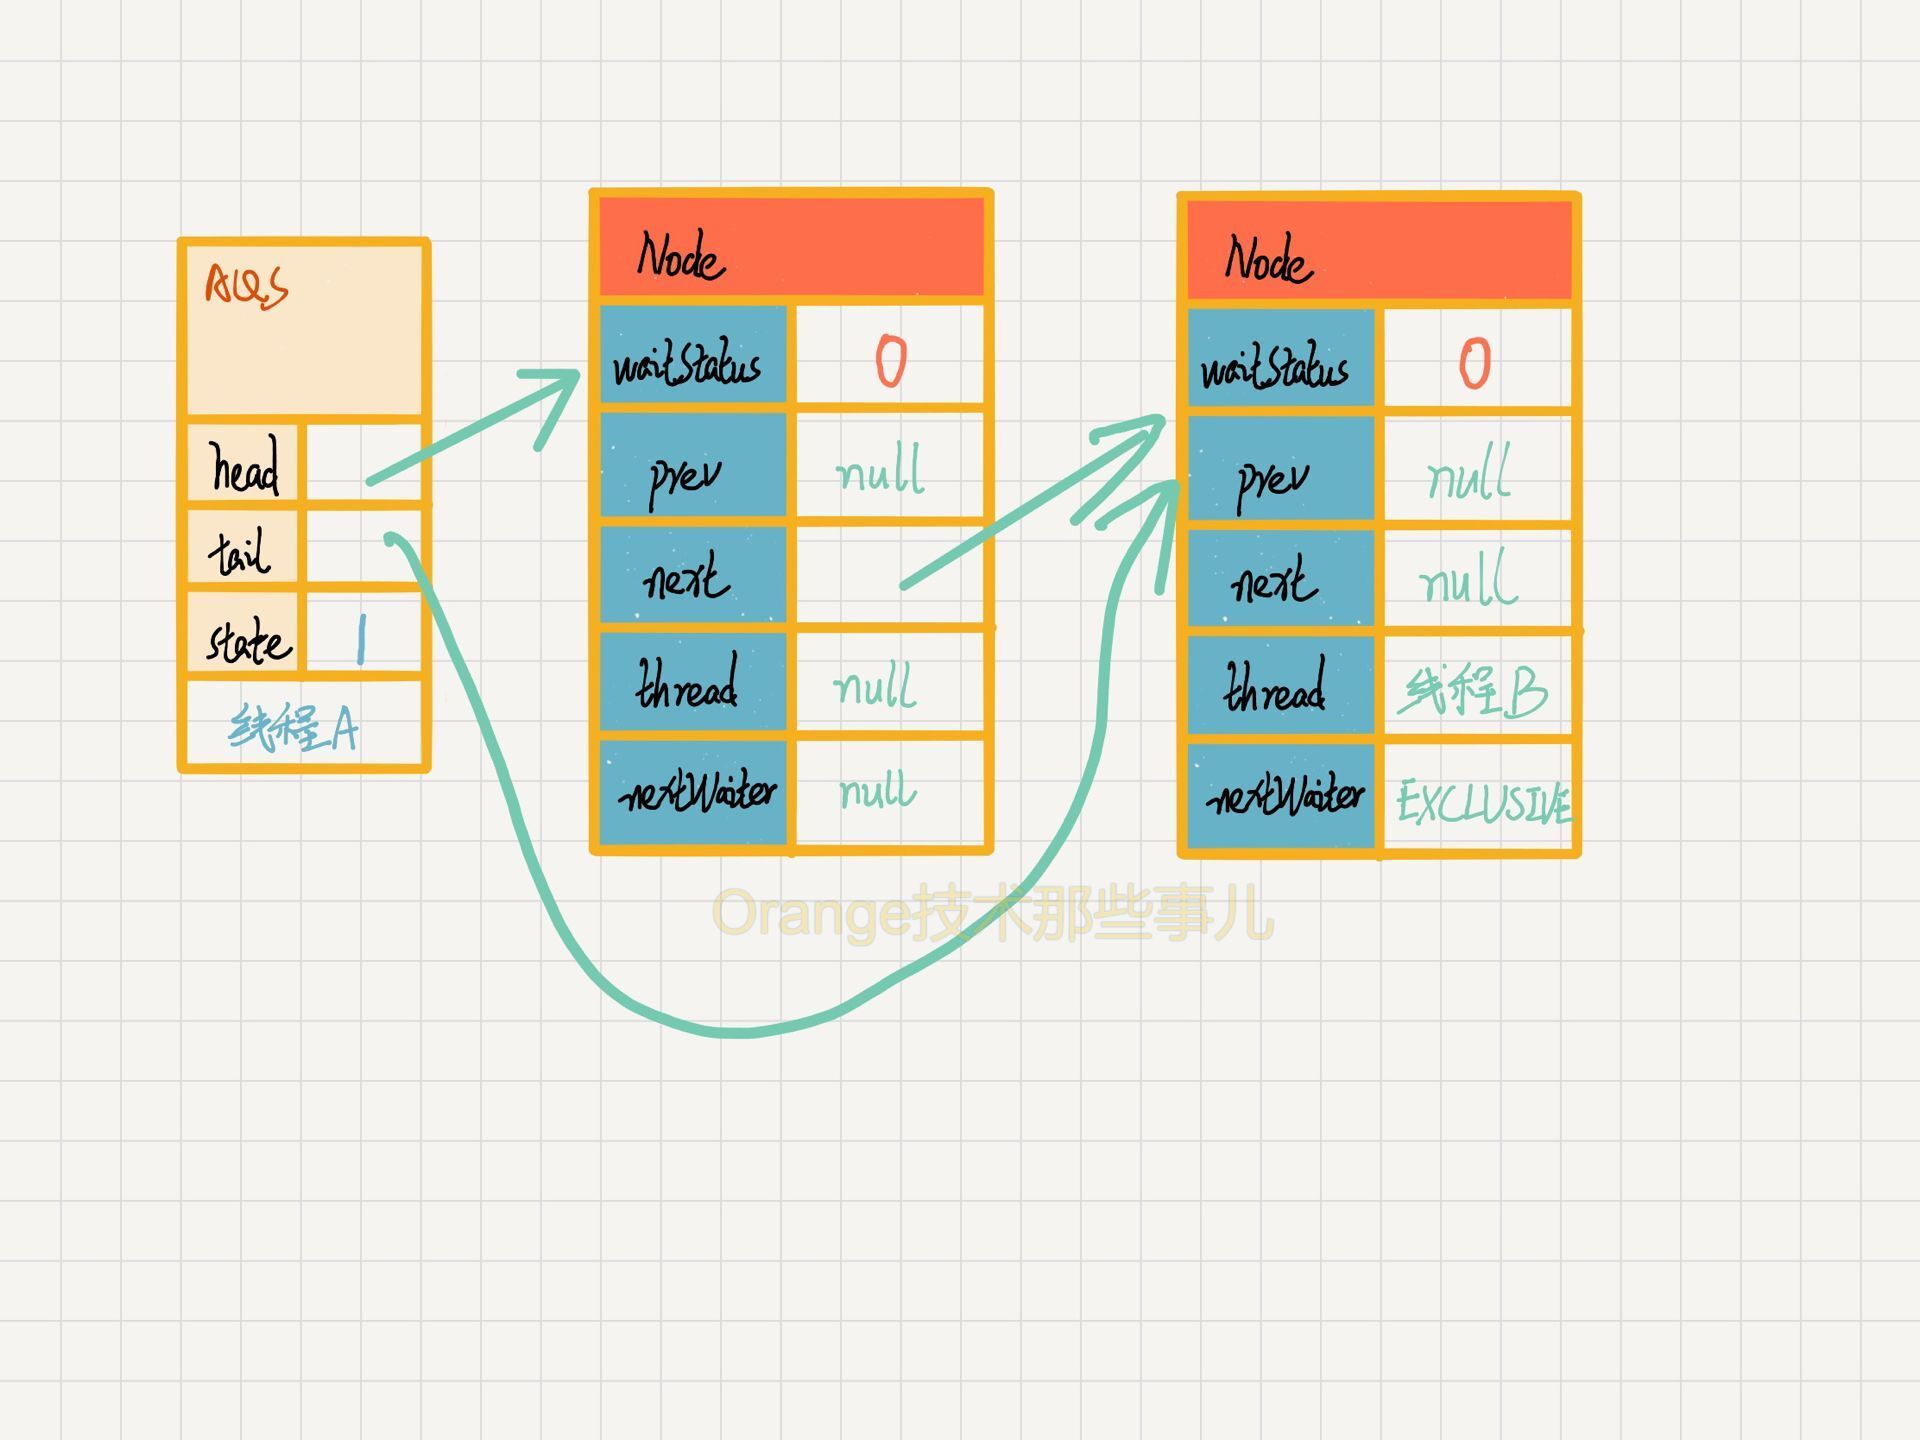 AQS
head
tail
state 1
线程A
Node
waitStatus 0
prev null
next
thread null
nextWaiter null
Node
waitStatus 0
prev null
next null
thread 线程B
nextWaiter EXCLUSIVE
Orange技术那些事儿